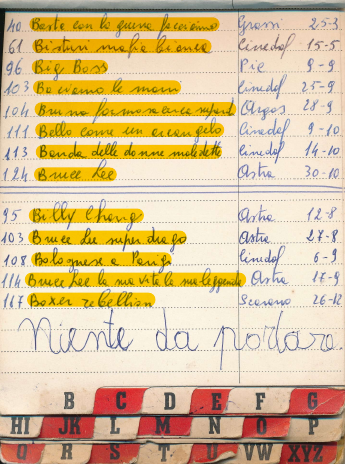 40 Basta con la guerra facciamo Grossi 25-3
61 Bisturi mafia bianca Cinedaf 15-5
96 Big Boss Pic 9-9
103 Baciamo le mani Cinedaf 25-9
104 Bruna formosa cerca superd Argos 28-9
111 Bello come un arcangelo Cinedaf 9-10
113 Banda delle donne maledette Cinedaf 14-10
124 Bruce Lee Astra 30-10
95 Billy Chang Astra 12-8
103 Bruce Lee superdrago Astra 27-8
108 Bolognese a Parigi Cinedaf 6-9
114 Bruce Lee la sua vita la sua leggenda Astra 17-9
167 Boxer rebellion 26-12
Niente da portare.
B C D E F G
HI JK L M N O P
Q R S T U VW XYZ